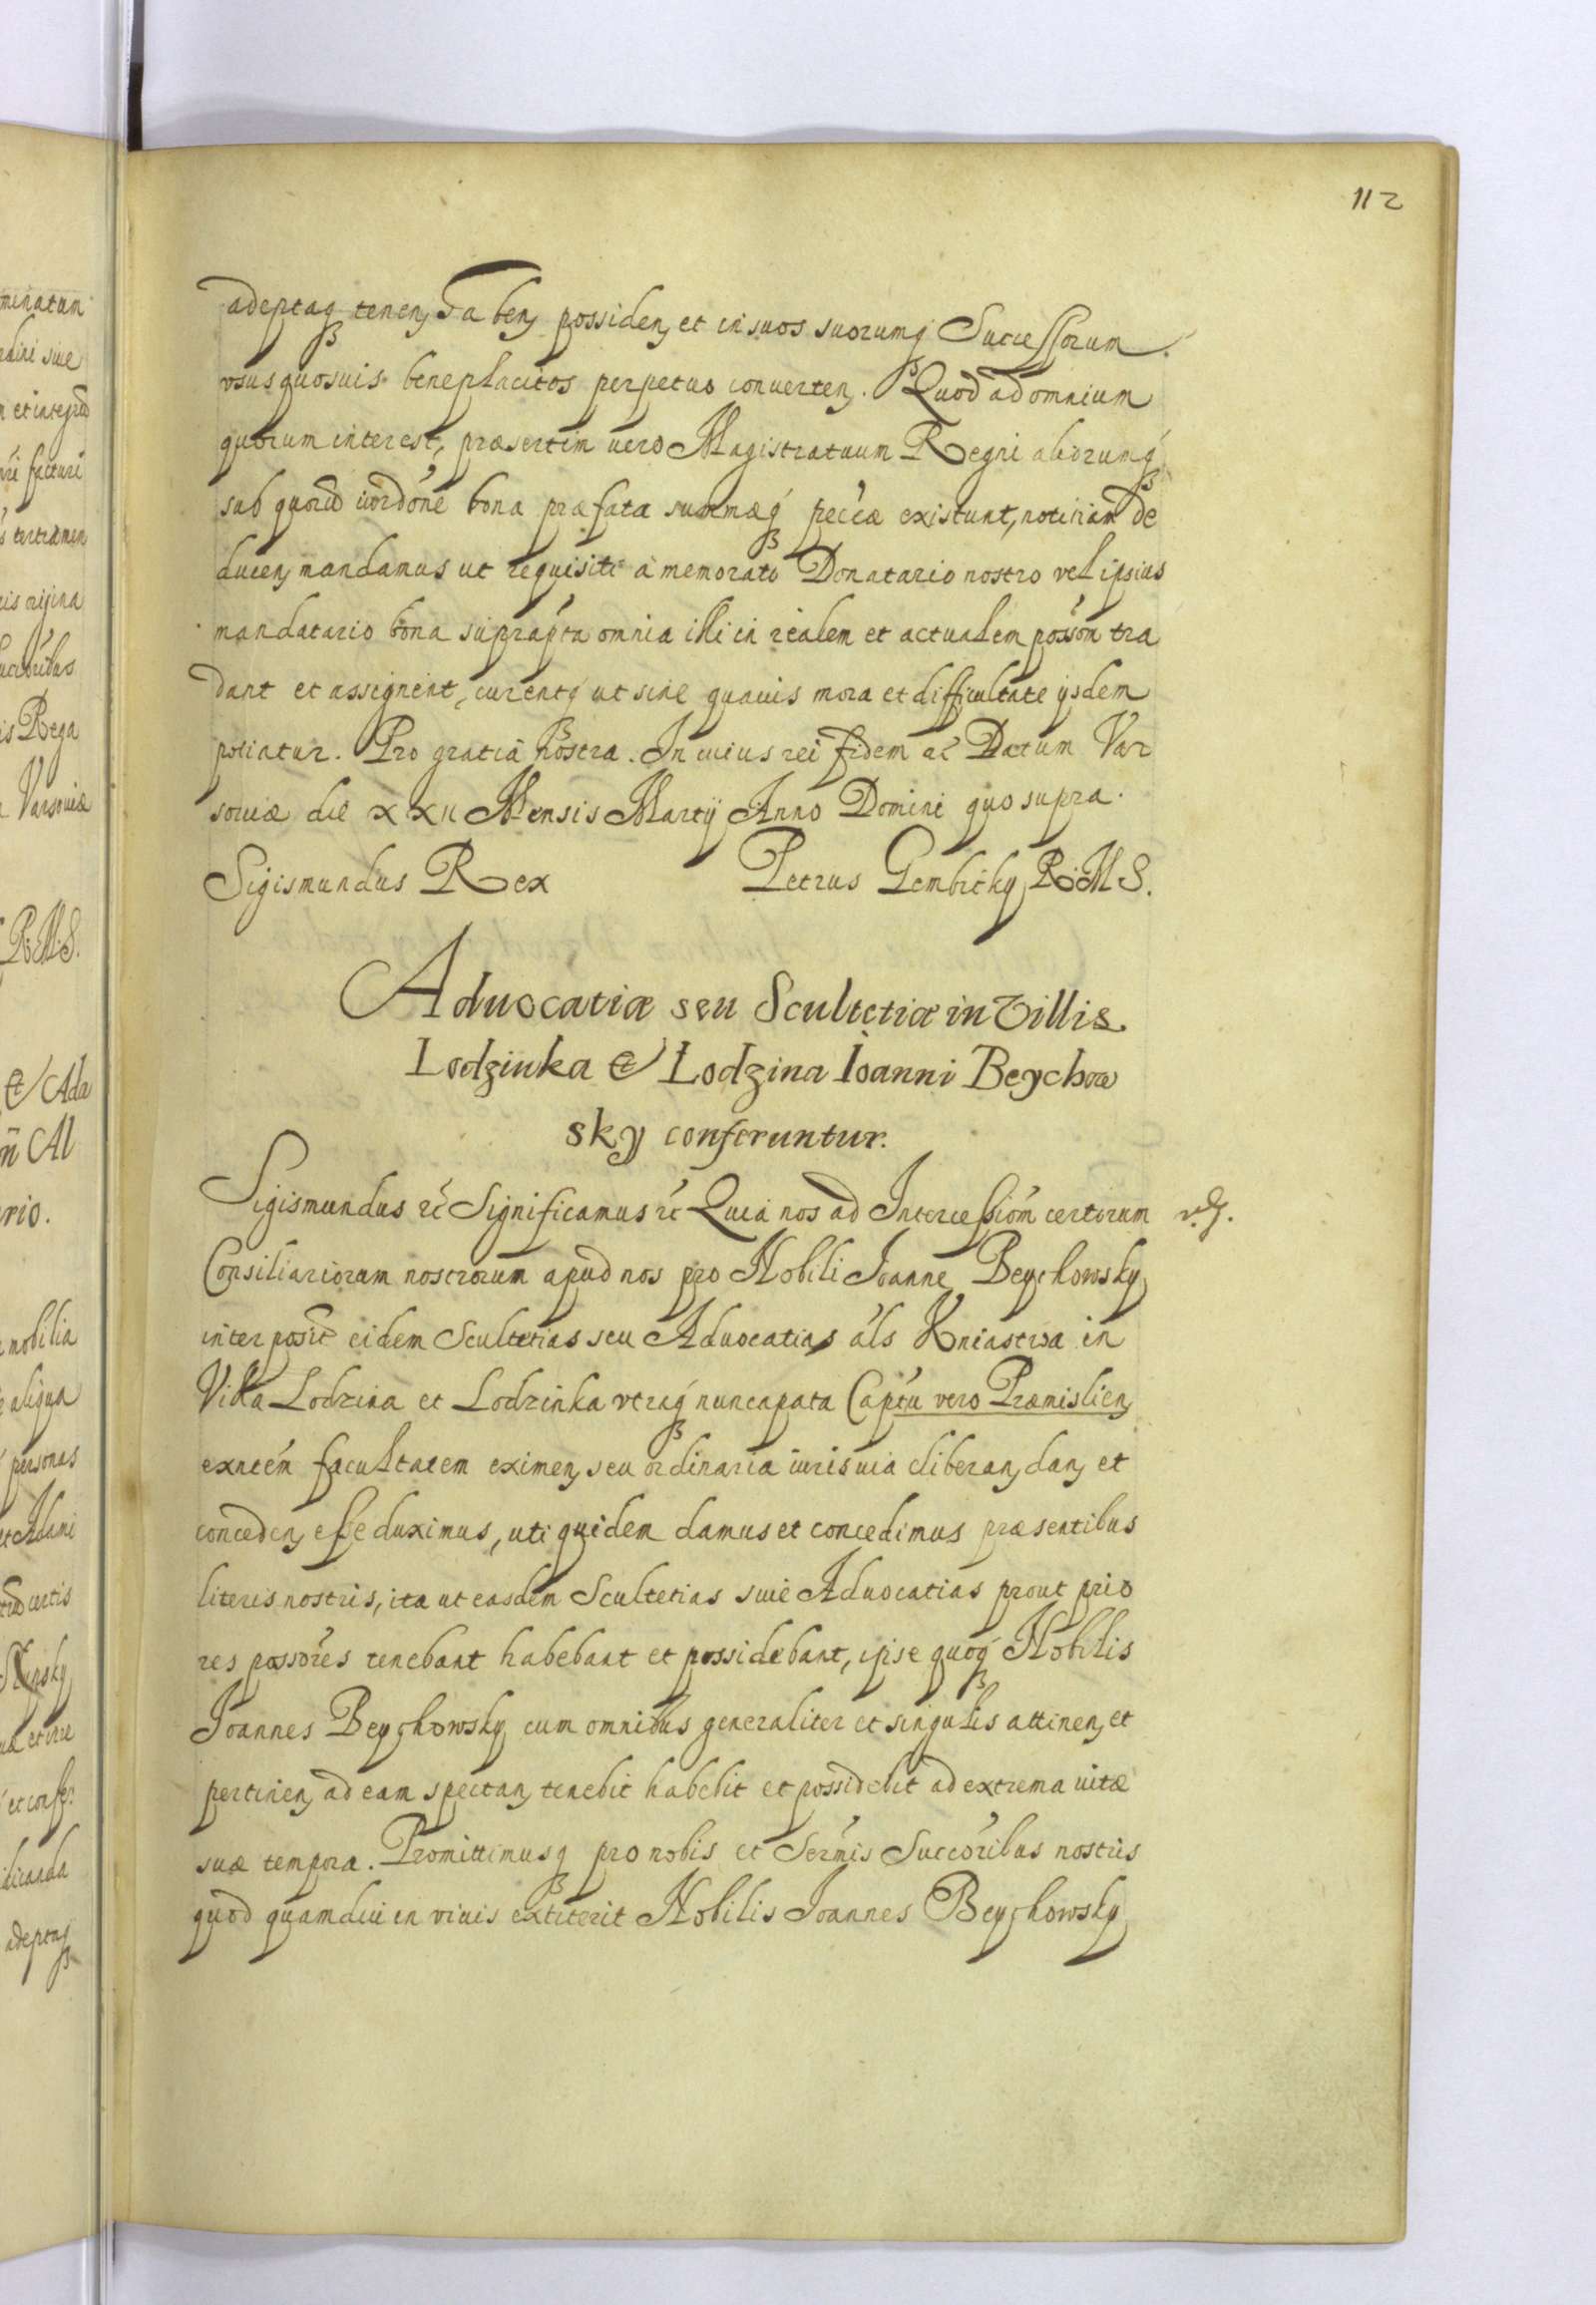 112
adeptaq tenen, haben, possiden, et in suos suorumq Successorum
usus quosuis beneplacitos perpetuo conuerten. Quod ad omnium
quorum interest, præsertim uero Magistratuum Regni aliorumq
sub quorũ iurdóne bona præfata summæq peccæ existunt, notitiam de
ducen, mandamus ut requisiti à memorato Donatario nostro vel ipsius
mandatario bona supraṕta omnia illi in realem et actualem possóm tra
dant et assignent, curentq ut sine quauis mora et difficultate ijsdem
potiatur. Pro gratia nostra. In cuius rei fidem &c Datum Var
souiæ die XXII Mensis Martij Anno Domini quo supra.
Sigismundus Rex Petrus Gembicky R. M. S.
Aduocatiæ seu Scultetiæ in Villis
Lodzinka & Lodzina Ioanni Beychow
sky conferuntur.
Sigismundus &c Significamus &c Quia nos ad Intercessióm certorum
Consiliariorum nostrorum apud nos pro Nobili Ioanne Beychowsky
interposit eidem Scultetias seu Aduocatias als Kniastwa in
Villa Lodzina et Lodzinka utraq nuncupata Captu vero Præmislien,
exntém facultatem eximen, seu ordinaria iuris uia liberan, dan, et
conceden, esse duximus, uti quidem damus et concedimus præsentibus
literis nostris, ita ut easdem Scultetias siue Aduocatias prout prio
res possóres tenebant habebant et possidebant, ipse quoq Nobilis
Ioannes Beychowsky cum omnibus generaliter et singulis attinen, et
pertinen, ad eam spectan, tenebit habebit et possidebit ad extrema uitæ
suæ tempora. Promittimusq pro nobis et Sermis Succóribus nostris
quod quamdiu in viuis extiterit Nobilis Ioannes Beychowsky